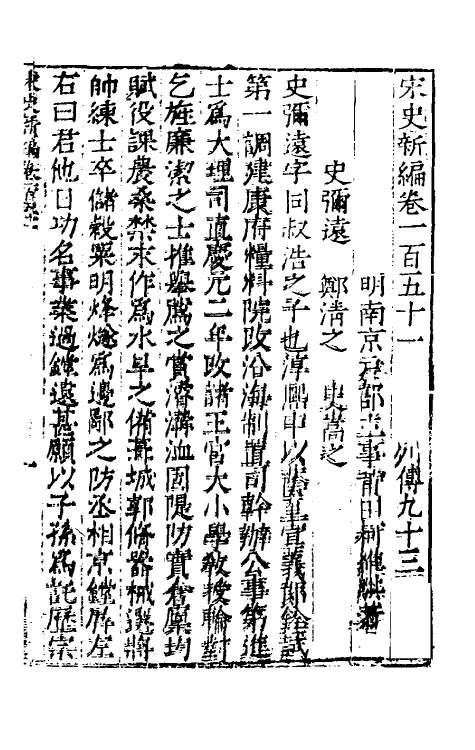 宋史新編卷一百五十一　列傳九十三
明南京戶部主事莆田柯維騏著
史彌遠　鄭清之　史嵩之
史彌遠字同叔浩之子也淳熙中以蔭補宣義郎銓試
第一調建康府糧料院改沿海制置司幹辦公事第進
士為大理司直慶元二年改諸王宮大小學教授輪對
乞旌廉潔之士推舉薦之賞濬溝洫固隄防實倉廩均
賦役課農桑禁末作為水旱之備葺城郭修器械選將
帥練士卒儲穀粟明烽燧為邊鄙之防丞相京鏜屏左
右曰君他日功名事業過鏜遠甚願以子孫為託歷宗
宋史新編卷一百五十一
一